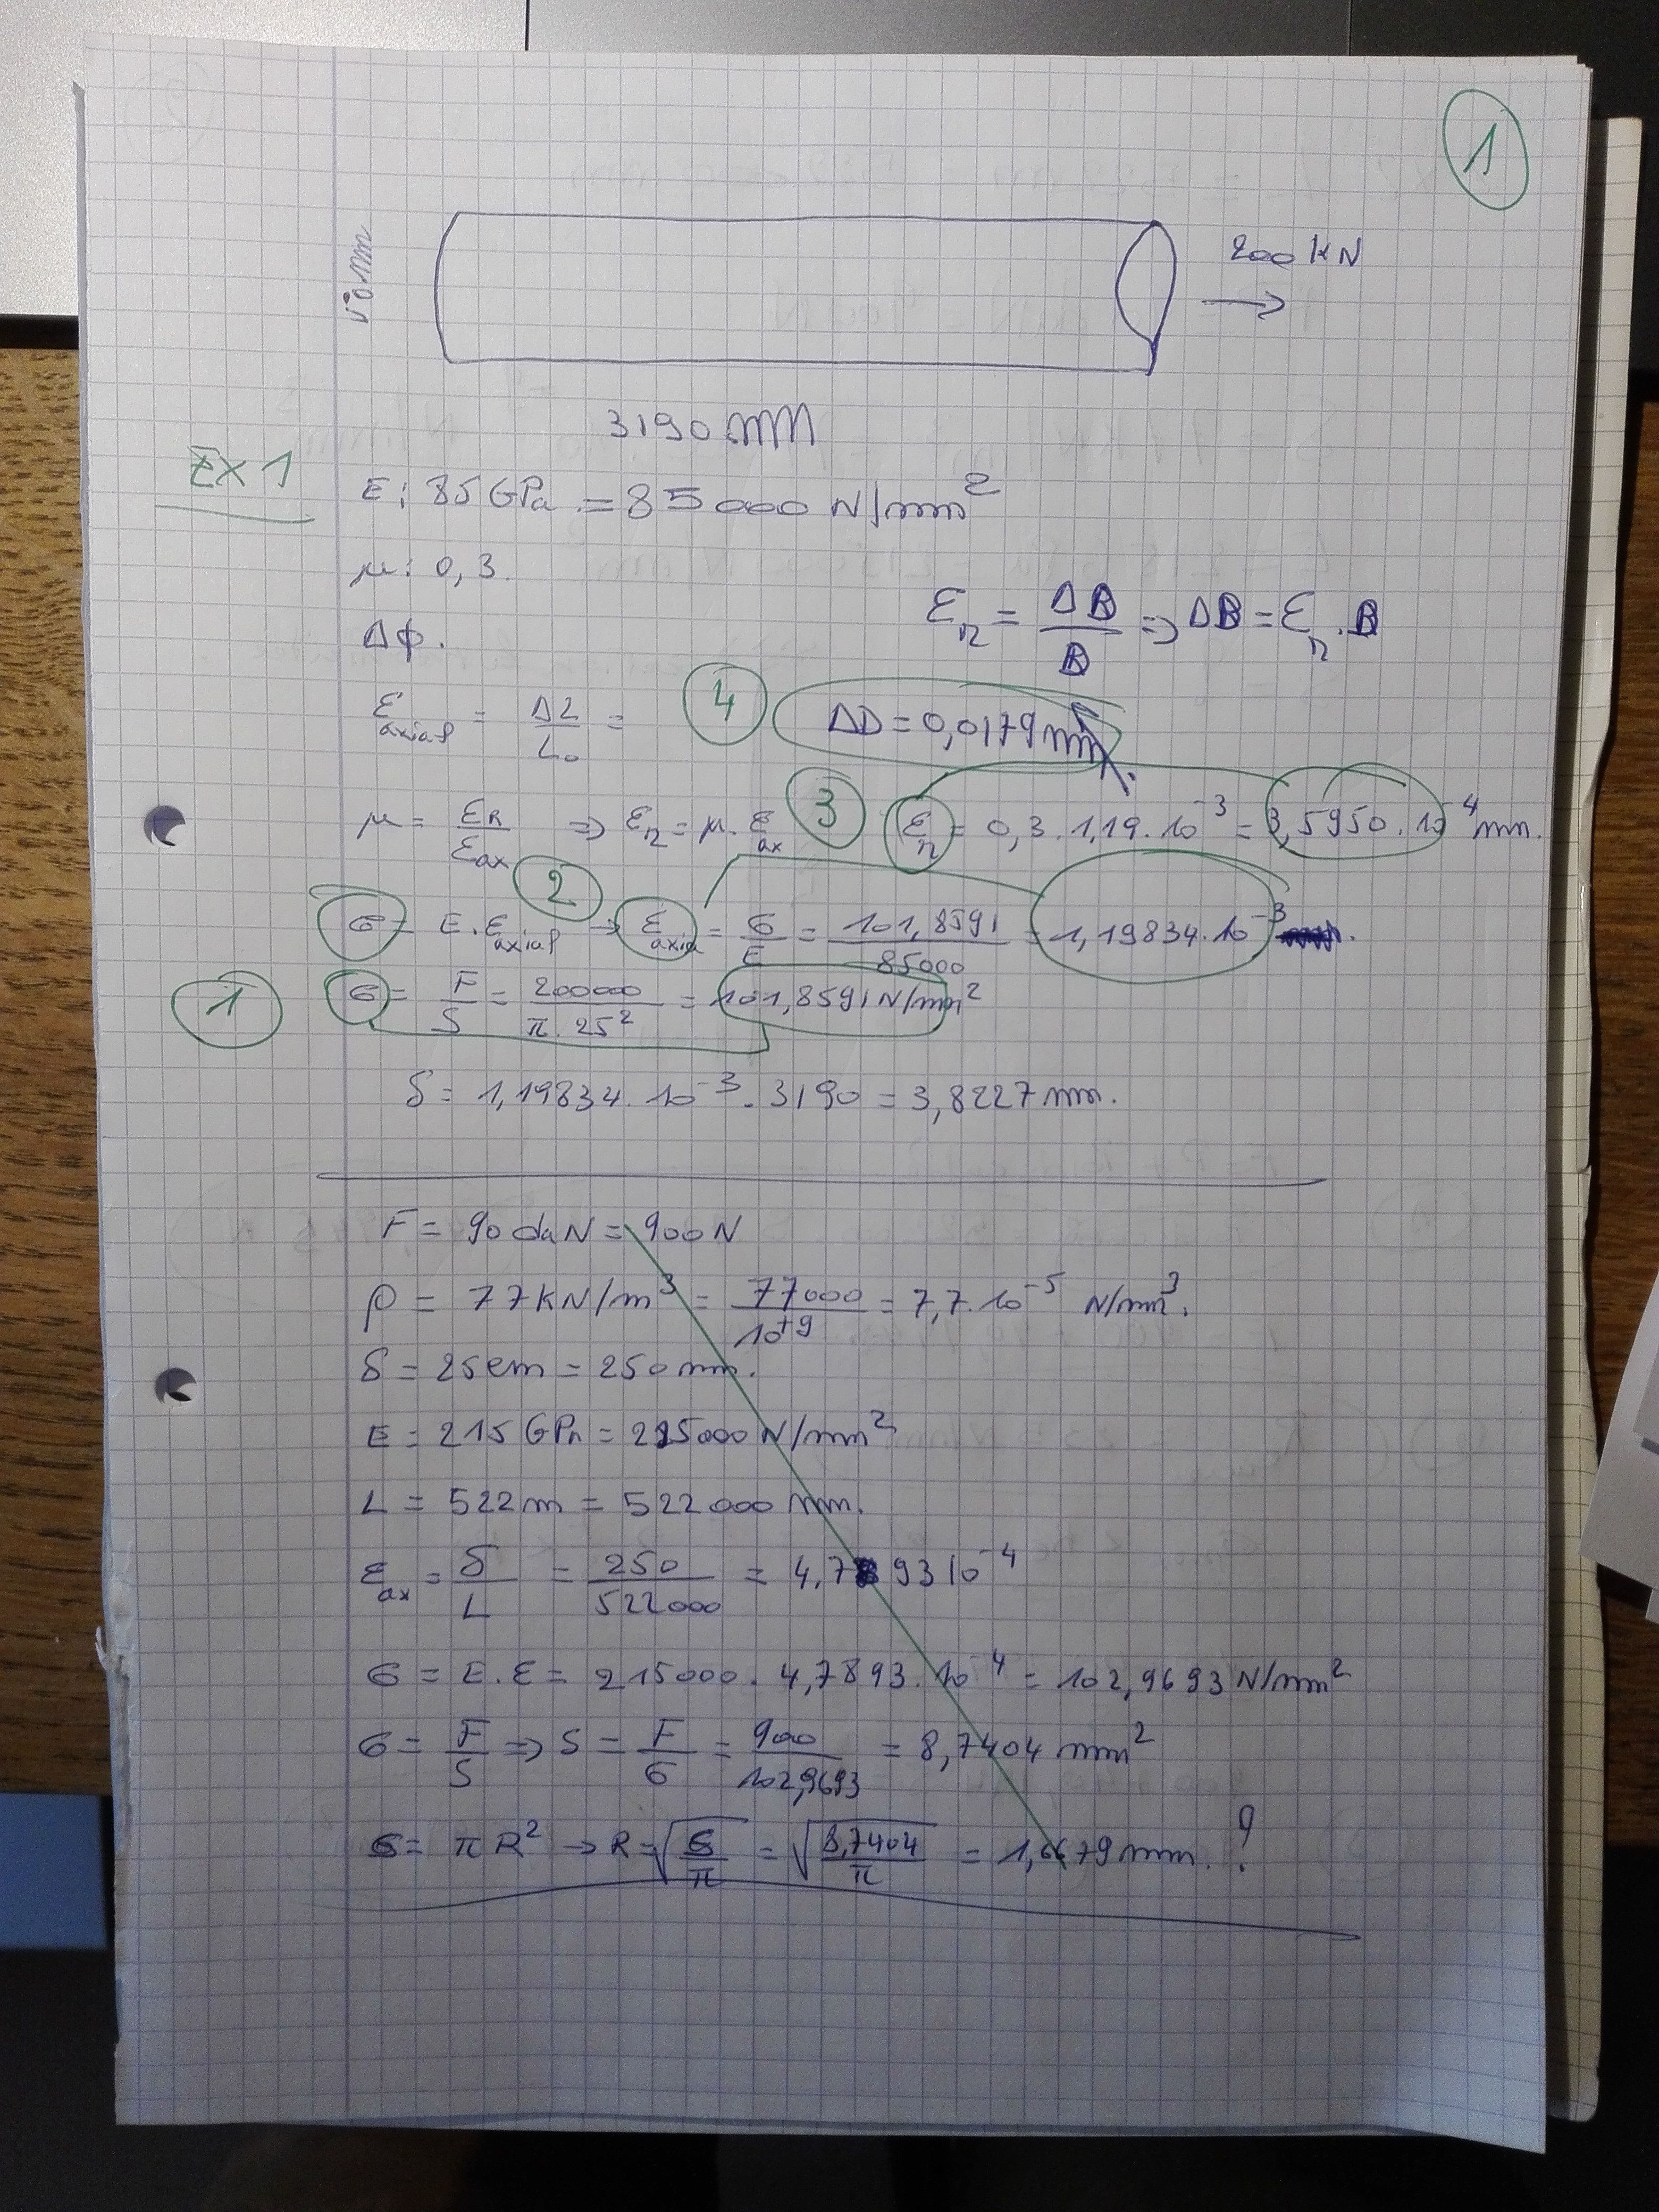 1
50 mm
200 kN
3190 mm
EX 1
E : 85 GPa = 85000 N/mm²
μ : 0,3.
Δφ.
ε_r = ΔB/B => ΔB = ε_r . B
ε_axial = ΔL/L₀ =
4 ΔD = 0,0179 mm.
μ = ε_R/ε_ax => ε_r = μ. ε_ax 3 ε_r = 0,3 . 1,19 . 10⁻³ = 3,5950 . 10⁻⁴ mm.
σ = E. ε_axial 2 → ε_axia = σ/E = 101,8591/85000 = 1,19834 . 10⁻³
1 σ = F/S = 200000/π . 25² = 101,8591 N/mm²
δ = 1,19834 . 10⁻³ . 3190 = 3,8227 mm.
F = 90 daN = 900 N
ρ = 77 kN/m³ = 77000/10⁺⁹ = 7,7 . 10⁻⁵ N/mm³.
δ = 25 cm = 250 mm.
E = 215 GPa = 215000 N/mm²
L = 522 m = 522000 mm.
ε_ax = δ/L = 250/522000 = 4,7893 10⁻⁴
σ = E. ε = 215000 . 4,7893 . 10⁻⁴ = 102,9693 N/mm²
σ = F/S => S = F/σ = 900/102,9693 = 8,7404 mm²
S = πR² → R = √(S/π) = √(8,7404/π) = 1,6679 mm. ?